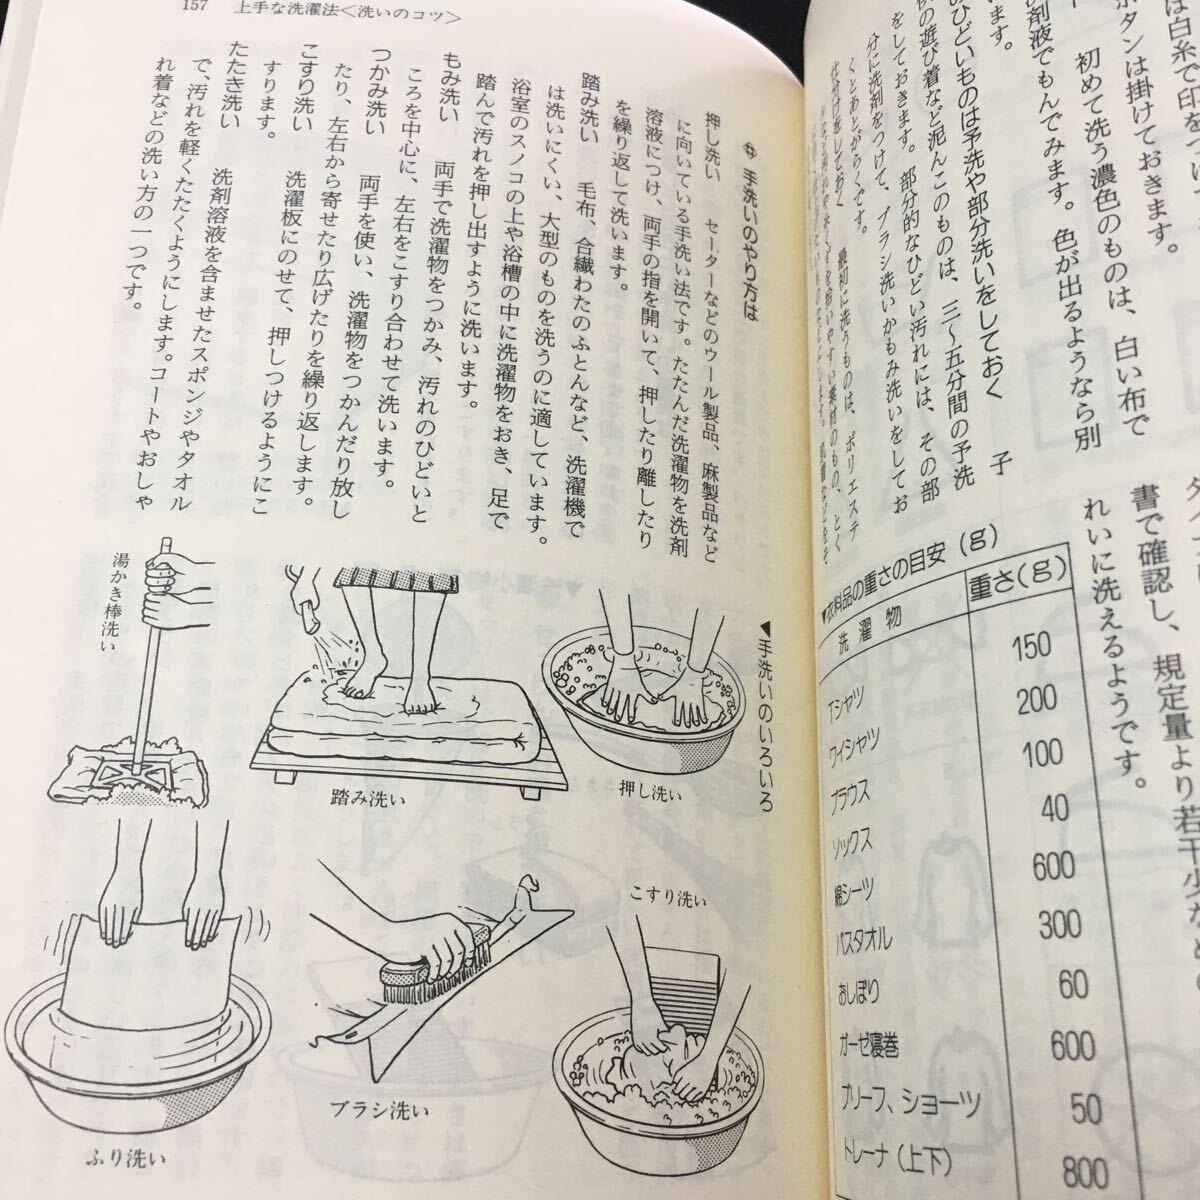 は白糸で印をつ
ボタンは掛けておきます。
初めて洗う濃色のものは、白い布で
剤液でもんでみます。色が出るようなら別
ます。
のひどいものは予洗や部分洗いをしておく
の遊び着など泥んこのものは、三〜五分間の予洗
をしておきます。部分的なひどい汚れには、その部
分に洗剤をつけて、ブラシ洗いかもみ洗いをしてお
くとあとがらくです。
仕分けをしておく
最初に洗うものは、ポリエステ
書で確認し、規定量より若干少なめの
れいに洗えるようです。
▼衣料品の重さの目安(g)
洗濯物 重さ(g)
Tシャツ 150
ワイシャツ 200
ブラウス 100
ソックス 40
綿シーツ 600
バスタオル 300
おしぼり 60
ガーゼ寝巻 600
ブリーフ、ショーツ 50
トレーナ(上下) 800
157 上手な洗濯法<洗いのコツ>
手洗いのやり方は
押し洗い セーターなどのウール製品、麻製品など
に向いている手洗い法です。たたんだ洗濯物を洗剤
溶液につけ、両手の指を開いて、押したり離したり
を繰り返して洗います。
踏み洗い 毛布、合繊わたのふとんなど、洗濯機で
は洗いにくい、大型のものを洗うのに適しています。
浴室のスノコの上や浴槽の中に洗濯物をおき、足で
踏んで汚れを押し出すように洗います。
もみ洗い 両手で洗濯物をつかみ、汚れのひどいと
ころを中心に、左右をこすり合わせて洗います。
つかみ洗い 両手を使い、洗濯物をつかんだり放し
たり、左右から寄せたり広げたりを繰り返します。
こすり洗い 洗濯板にのせて、押しつけるようにこ
すります。
たたき洗い 洗剤溶液を含ませたスポンジやタオル
で、汚れを軽くたたくようにします。コートやおしゃ
れ着などの洗い方の一つです。
▼手洗いのいろいろ
押し洗い
踏み洗い
湯かき棒洗い
こすり洗い
ブラシ洗い
ふり洗い